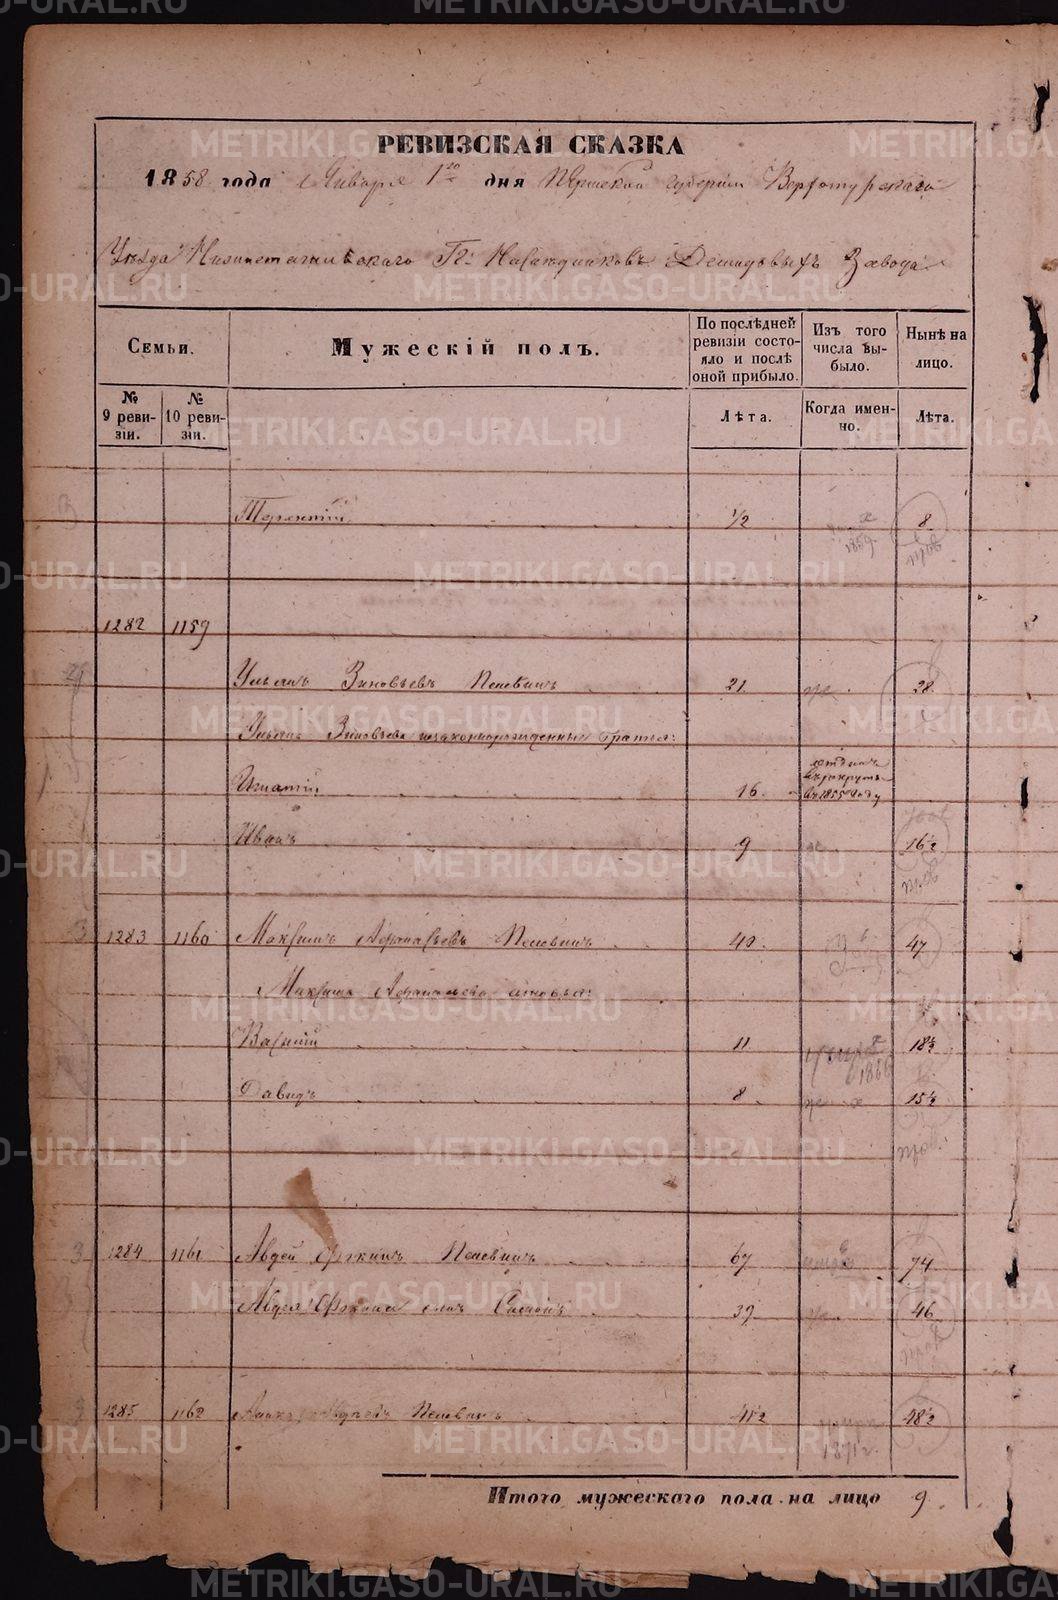 РЕВИЗСКАЯ СКАЗКА
1858 года Января 1го дня Пермской губернии Верхотурскаго
Уѣзда Нижнетагильскаго Гг. Наслѣдниковъ Демидовыхъ Завода
Семьи.
Мужескій полъ.
По послѣдней ревизіи состояло и послѣ оной прибыло.
Изъ того числа выбыло.
Нынѣ на лицо.
№ 9 ревизіи.
№ 10 ревизіи.
Лѣта.
Когда именно.
Лѣта.
Терентій 1/2 1859 8
1282 1159
Ульянъ Зиновьевъ Пелевинъ 21 28
Ульяна Зиновьева незаконнорожденные братья:
Игнатій 16 отданъ въ рекруты въ 1855 году
Иванъ 9 16½
1283 1160 Максимъ Афанасьевъ Пелевинъ 40 47
Максима Афанасьева сыновья:
Василій 11 18½
Давидъ 8 15½
1284 1161 Авдей Пелевинъ 67 74
Авдея сынъ Симонъ 39 46
1285 1162 Пелевинъ 41½ 1871 г. 48½
Итого мужескаго пола на лицо 9
METRIKI.GASO-URAL.RU